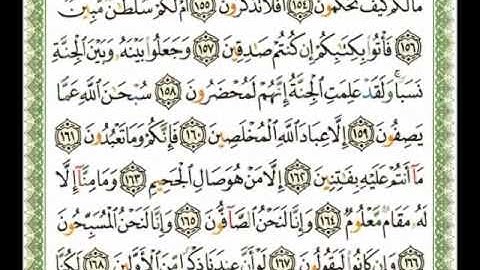 مَا لَكُمْ كَيْفَ تَحْكُمُونَ ١٥٤ أَفَلَا تَذَكَّرُونَ ١٥٥ أَمْ لَكُمْ سُلْطَٰنٌ مُّبِينٌ
١٥٦ فَأْتُوا۟ بِكِتَٰبِكُمْ إِن كُنتُمْ صَٰدِقِينَ ١٥٧ وَجَعَلُوا۟ بَيْنَهُۥ وَبَيْنَ ٱلْجِنَّةِ
نَسَبًا ۚ وَلَقَدْ عَلِمَتِ ٱلْجِنَّةُ إِنَّهُمْ لَمُحْضَرُونَ ١٥٨ سُبْحَٰنَ ٱللَّهِ عَمَّا
يَصِفُونَ ١٥٩ إِلَّا عِبَادَ ٱللَّهِ ٱلْمُخْلَصِينَ ١٦٠ فَإِنَّكُمْ وَمَا تَعْبُدُونَ ١٦١
مَآ أَنتُمْ عَلَيْهِ بِفَٰتِنِينَ ١٦٢ إِلَّا مَنْ هُوَ صَالِ ٱلْجَحِيمِ ١٦٣ وَمَا مِنَّآ إِلَّا
لَهُۥ مَقَامٌ مَّعْلُومٌ ١٦٤ وَإِنَّا لَنَحْنُ ٱلصَّآفُّونَ ١٦٥ وَإِنَّا لَنَحْنُ ٱلْمُسَبِّحُونَ
١٦٦ وَإِن كَانُوا۟ لَيَقُولُونَ ١٦٧ لَوْ أَنَّ عِندَنَا ذِكْرًا مِّنَ ٱلْأَوَّلِينَ ١٦٨ لَكُنَّا